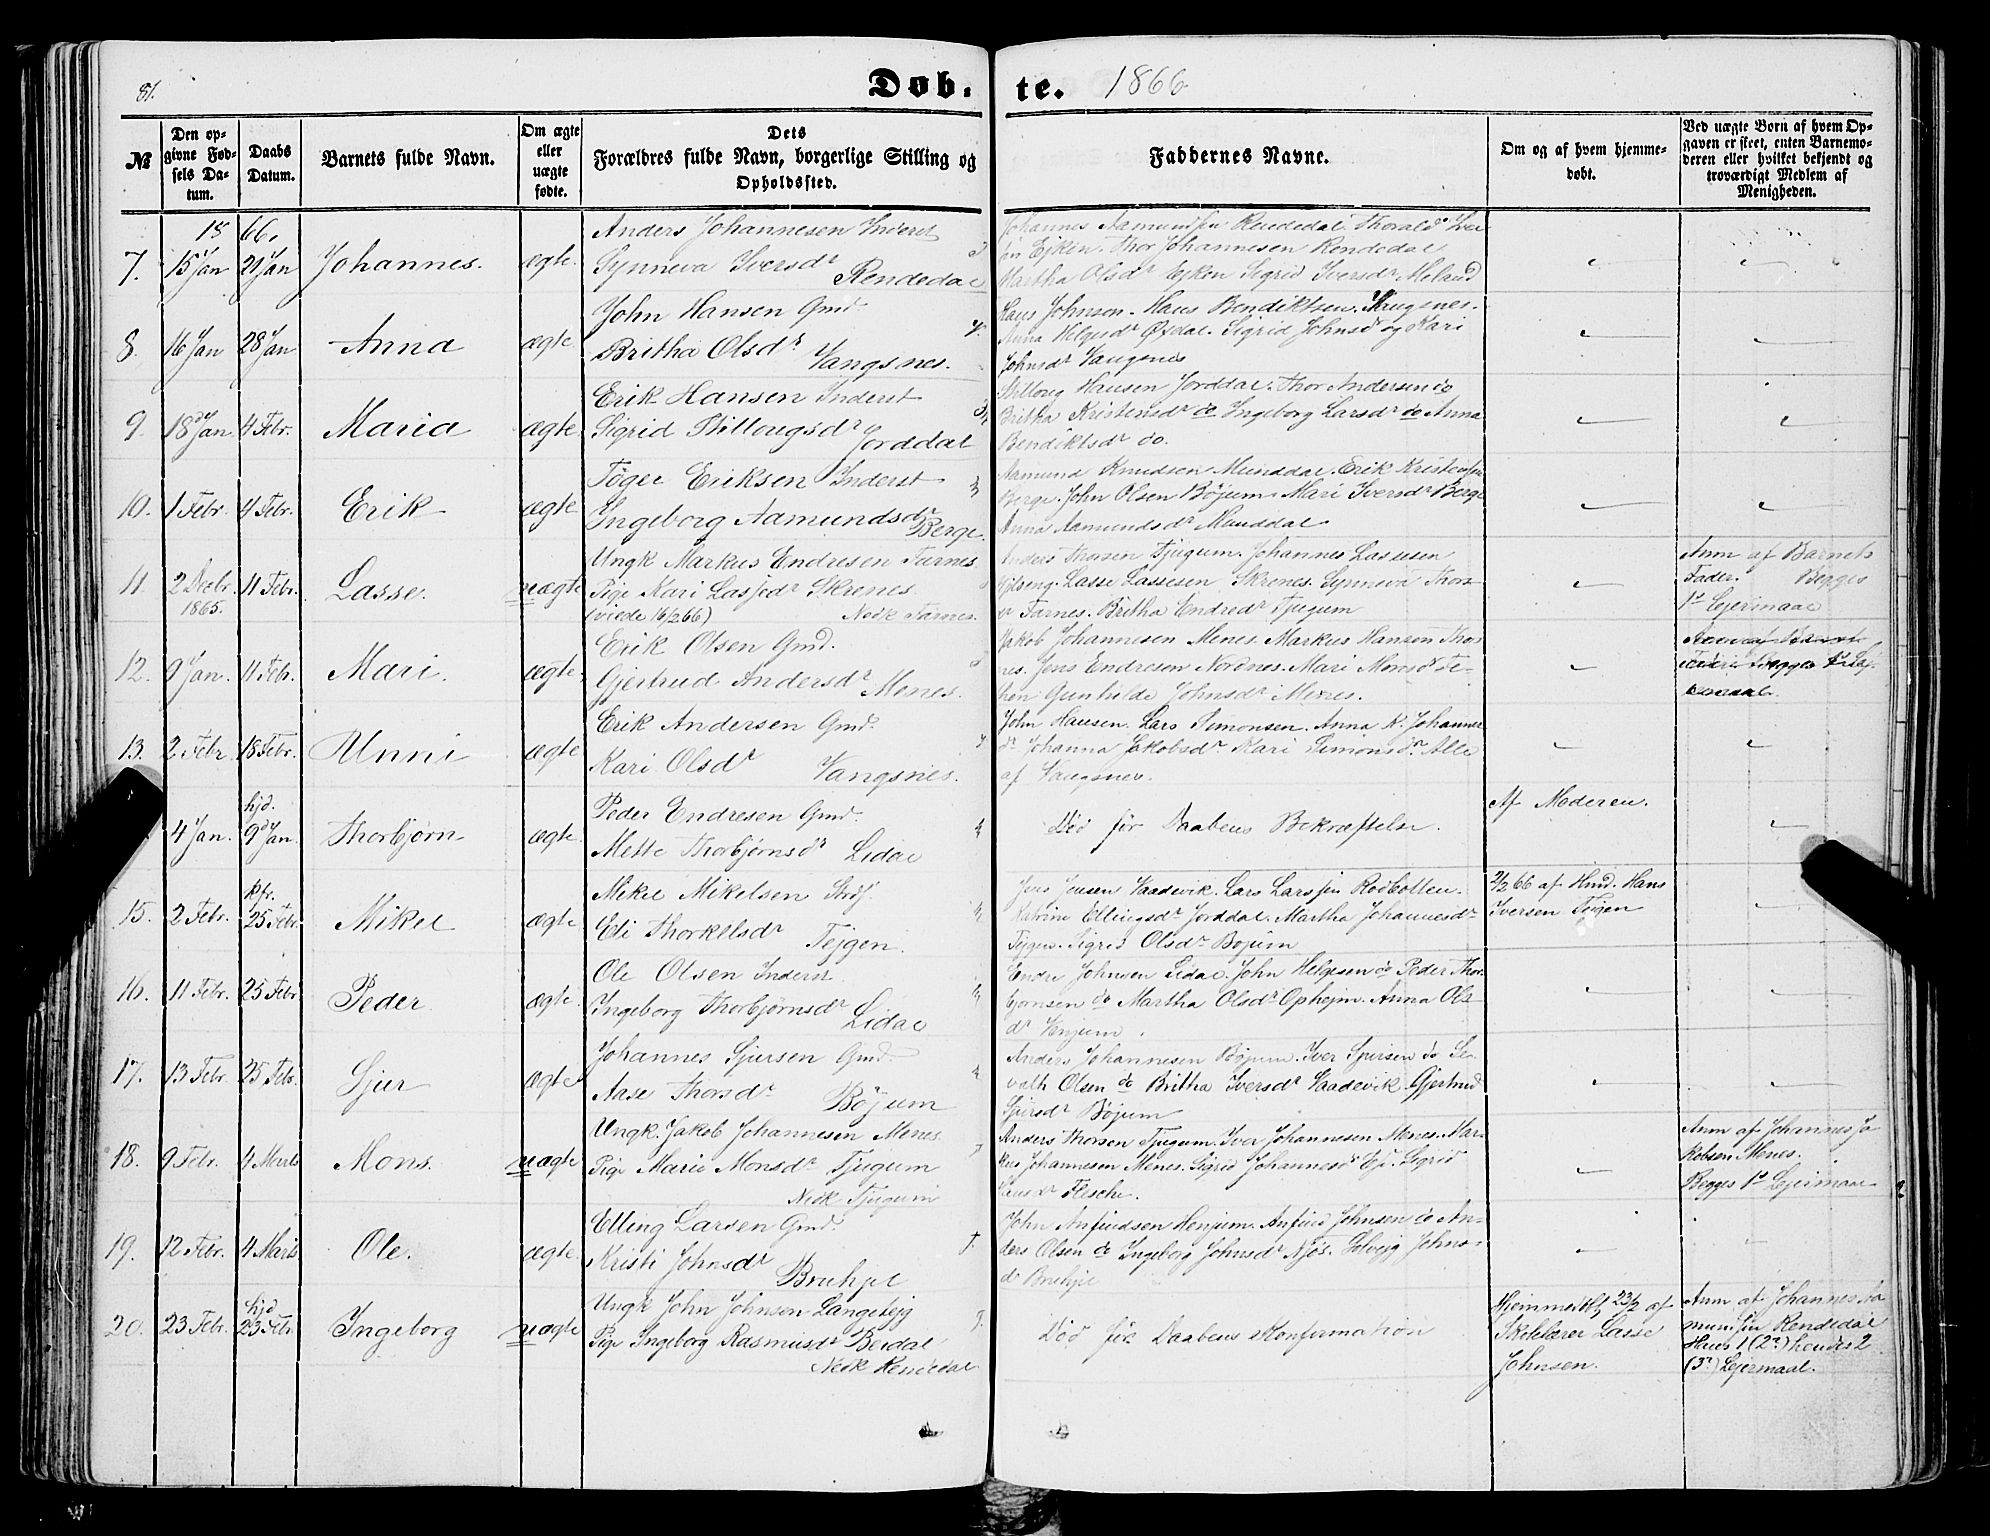 81.
Døb.
te. 1866
№
Den opgivne Fødsels Datum.
Daabs Datum.
Barnets fulde Navn.
Om ægte eller uægte fødte.
Dets Forældres fulde Navn, borgerlige Stilling og Opholdssted.
Faddernes Navne.
Om og af hvem hjemmedøbt.
Ved uægte Børn af hvem Opgaven er skeet, enten Barnemoderen eller hvilket bekjendt og troværdigt Medlem af Menigheden.
1866.
7. 15 Jan 21 Jan Johannes. ægte.
Anders Johannesen Inderst
Synneva Iversdr Rendedal
Johannes Aamundsen Rendedal Thorald Iver
sen Ejken. Thor Johannesen Rendedal
Martha Olsdr Ejken Sigrid Iversdr Meland
8. 16 Jan 28 Jan Anna ægte
John Hansen Gmd.
Britha Olsdr Vangsnes.
Hans Johnsen. Hans Bendiktsen. Vangsnes.
Anna Helgesdr Øsdal. Sigrid Johnsdr og Kari
Johnsdr Vangsnes
9. 18 Jan. 4 Febr. Maria ægte
Erik Hansen Inderst
Sigrid Stillougsdr Jorddal
Stilloug Hansen Jorddal. Thor Andersen do
Britha Kristensdr do Ingeborg Larsdr do Anna
Bendiktsdr do.
10. 1 Febr. 4 Febr. Erik ægte
Tøger Eriksen Inderst
Ingeborg Aamundsdr Berge.
Aamund Knudsen Munddal. Erik Kristensen
Berge. John Olsen Bøjum. Mari Iversdr Berge
Anna Aamundsdr Munddal
11. 2 Decbr. 1865. 11 Febr. Lasse. uægte
Ungk Markus Endresen Farnes
Pige Kari Lassedr Skrenes
(viede 16/2 66) Nedk Farnes.
Anders Thorsen Tjugum. Johannes Lassesen
Lasse Lassesen Skrenes. Synneva Thors
dr Farnes. Britha Endredr Tjugum
Anm af Barnets
Fader. Begges
1ste Lejermaal
12. 9 Jan. 11 Febr. Mari. ægte
Erik Olsen Gmd.
Gjertrud Andersdr Menes.
Jakob Johannesen Menes. Markus Hansen Thor
nes. Jens Endresen Nordnes. Mari Monsdr Te-
Gunhilde Johnsdr Menes.
13. 2 Febr 18 Febr. Unni ægte
Erik Andersen Gmd.
Kari Olsdr Vangsnes.
John Hansen. Lars Simonsen. Anna K. Johannes
dr Johanna Jakobsdr Kari Simonsdr. Alle
af Vangsnes.
4 Jan. hjd. 9 Jan. Thorbjørn ægte.
Peder Endresen Gmd.
Mette Thorbjørnsdr Lidal
Død før Daabens Bekræftelse.
Af Moderen.
15. 2 Febr. 25 Febr. Mikel ægte.
Mikel Mikelsen Strf.
Eli Thorkelsdr Tejgen.
Jens Jensen Vaadevik. Lars Larssen Rodbotten.
Katrine Ellingsdr Jorddal. Martha Johannesdr
Tejgen. Sigrid Olsdr Bøjum
2/2 66 af Hmd. Hans
Iversen Teigen
16. 11 Febr. 25 Febr. Peder ægte.
Ole Olsen Inderst
Ingeborg Thorbjørnsdr Lidal
Endre Johnsen Lidal. John Helgesen do Peder Thor
bjørnsen do Martha Olsdr Ophejm. Anna Ols
dr Venjum.
17. 13 Febr. 25 Febr. Sjur ægte
Johannes Sjursen Gmd.
Aase Thorsdr Bøjum
Anders Johannesen Bøjum. Iver Sjursen do Se-
vath Olsen do Britha Iversdr Vaadevik Gjertrud
Sjursdr Bøjum
18. 9 Febr. 4 Marts Mons. uægte
Ungk. Jakob Johannesen Menes
Pige Marie Monsdr Tjugum
Nedk Tjugum
Anders Thorsen Tjugum. Iver Johannesen Menes. Mar-
kus Johannesen Menes. Sigrid Johannesdr Sigrid
Hansdr Flesche.
Anm af Johannes Ja
kobsen Menes.
Begges 1ste Lejermaal
19. 12 Febr. 4 Marts Ole. ægte.
Elling Larsen Gmd.
Kristi Johnsdr Bruhjel
John Anfindsen Henjum. Anfind Johnsen do An-
ders Olsen do Ingeborg Johnsdr Njøs. Solvejg Johns-
dr Bruhjel
20. 23 Febr. hjd 23 Febr. Ingeborg uægte
Ungk John Johnsen Langetejg
Pige Ingeborg Rasmusdr Beidal
Nedk Rendedal
Død før Daabens Konfirmation
Hjemmedøbt 23/2 af
Skolelærer Lasse
Johnsen.
Anm af Johannes Aa
mundsen Rendedal
Hans 1 (2) hendes 2
(3) Lejermaal.